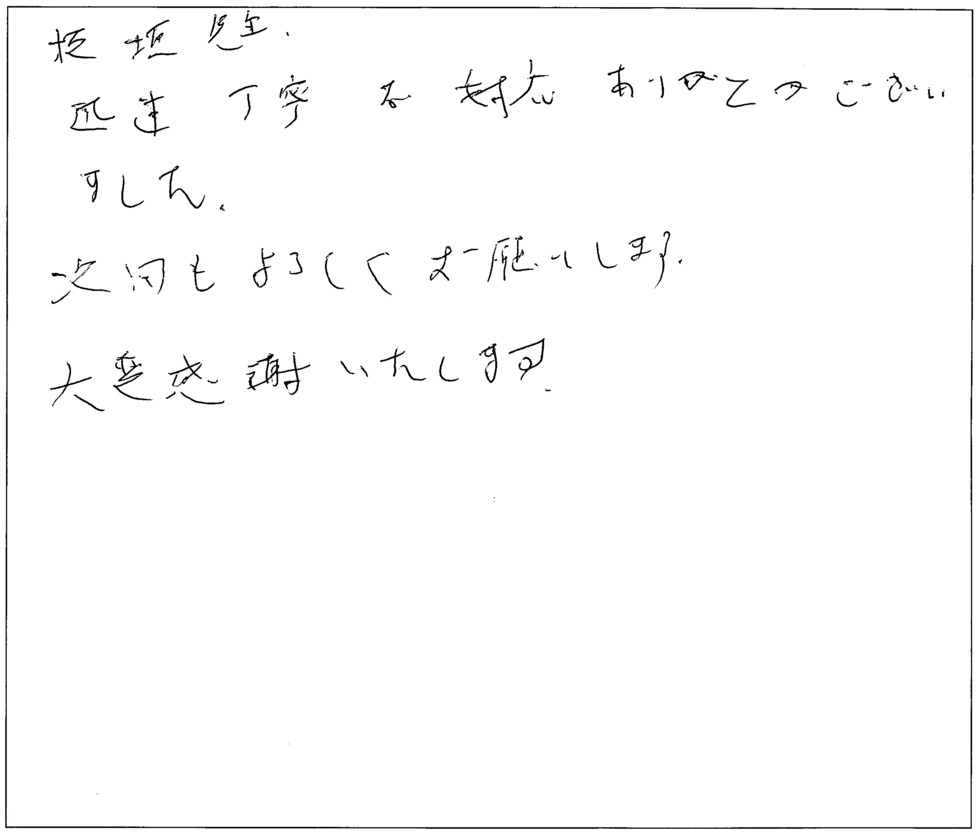 板垣先生.
迅速丁寧な対応ありがとうござい
ました.
次回もよろしくお願いします.
大変感謝いたします.